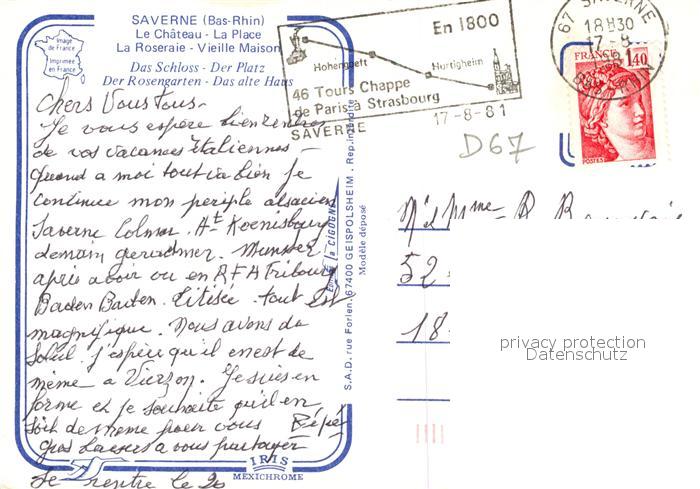 SAVERNE (Bas-Rhin)
Le Château - La Place
La Roseraie - Vieille Maison
Das Schloss - Der Platz
Der Rosengarten - Das alte Haus
Image de France
Imprimée en France
Chers Vous tous -
Je vous espère bien rentrés
de vos vacances Italiennes -
Quand a moi tout va bien Je
continue mon periple alsacien
Saverne Colmar. Ht Koenisbourg
demain gerardmer. Munster
après avoir vu en RFA Fribourg
Baden Baden. Titisée. tout est
magnifique. Nous avons du
soleil. j'espère qu'il en est de
même a Vierzon. Je suis en
forme et je souhaite qu'il en
soit de meme pour vous Pépé
gros baisers a vous partager
Je rentre le 20
IRIS
MEXICHROME
S.A.D. rue Forlen, 67400 GEISPOLSHEIM. Rep. interdite
Editée la CIGOGNE
Modèle déposé
En 1800
Hohengoeft
Hurtigheim
46 Tours Chappe
de Paris à Strasbourg
SAVERNE
17-8-81
67 SAVERNE
18H30
17-8
RHIN
FRANCE
1,40
POSTES
D67
Mme R
52
18
privacy protection
Datenschutz